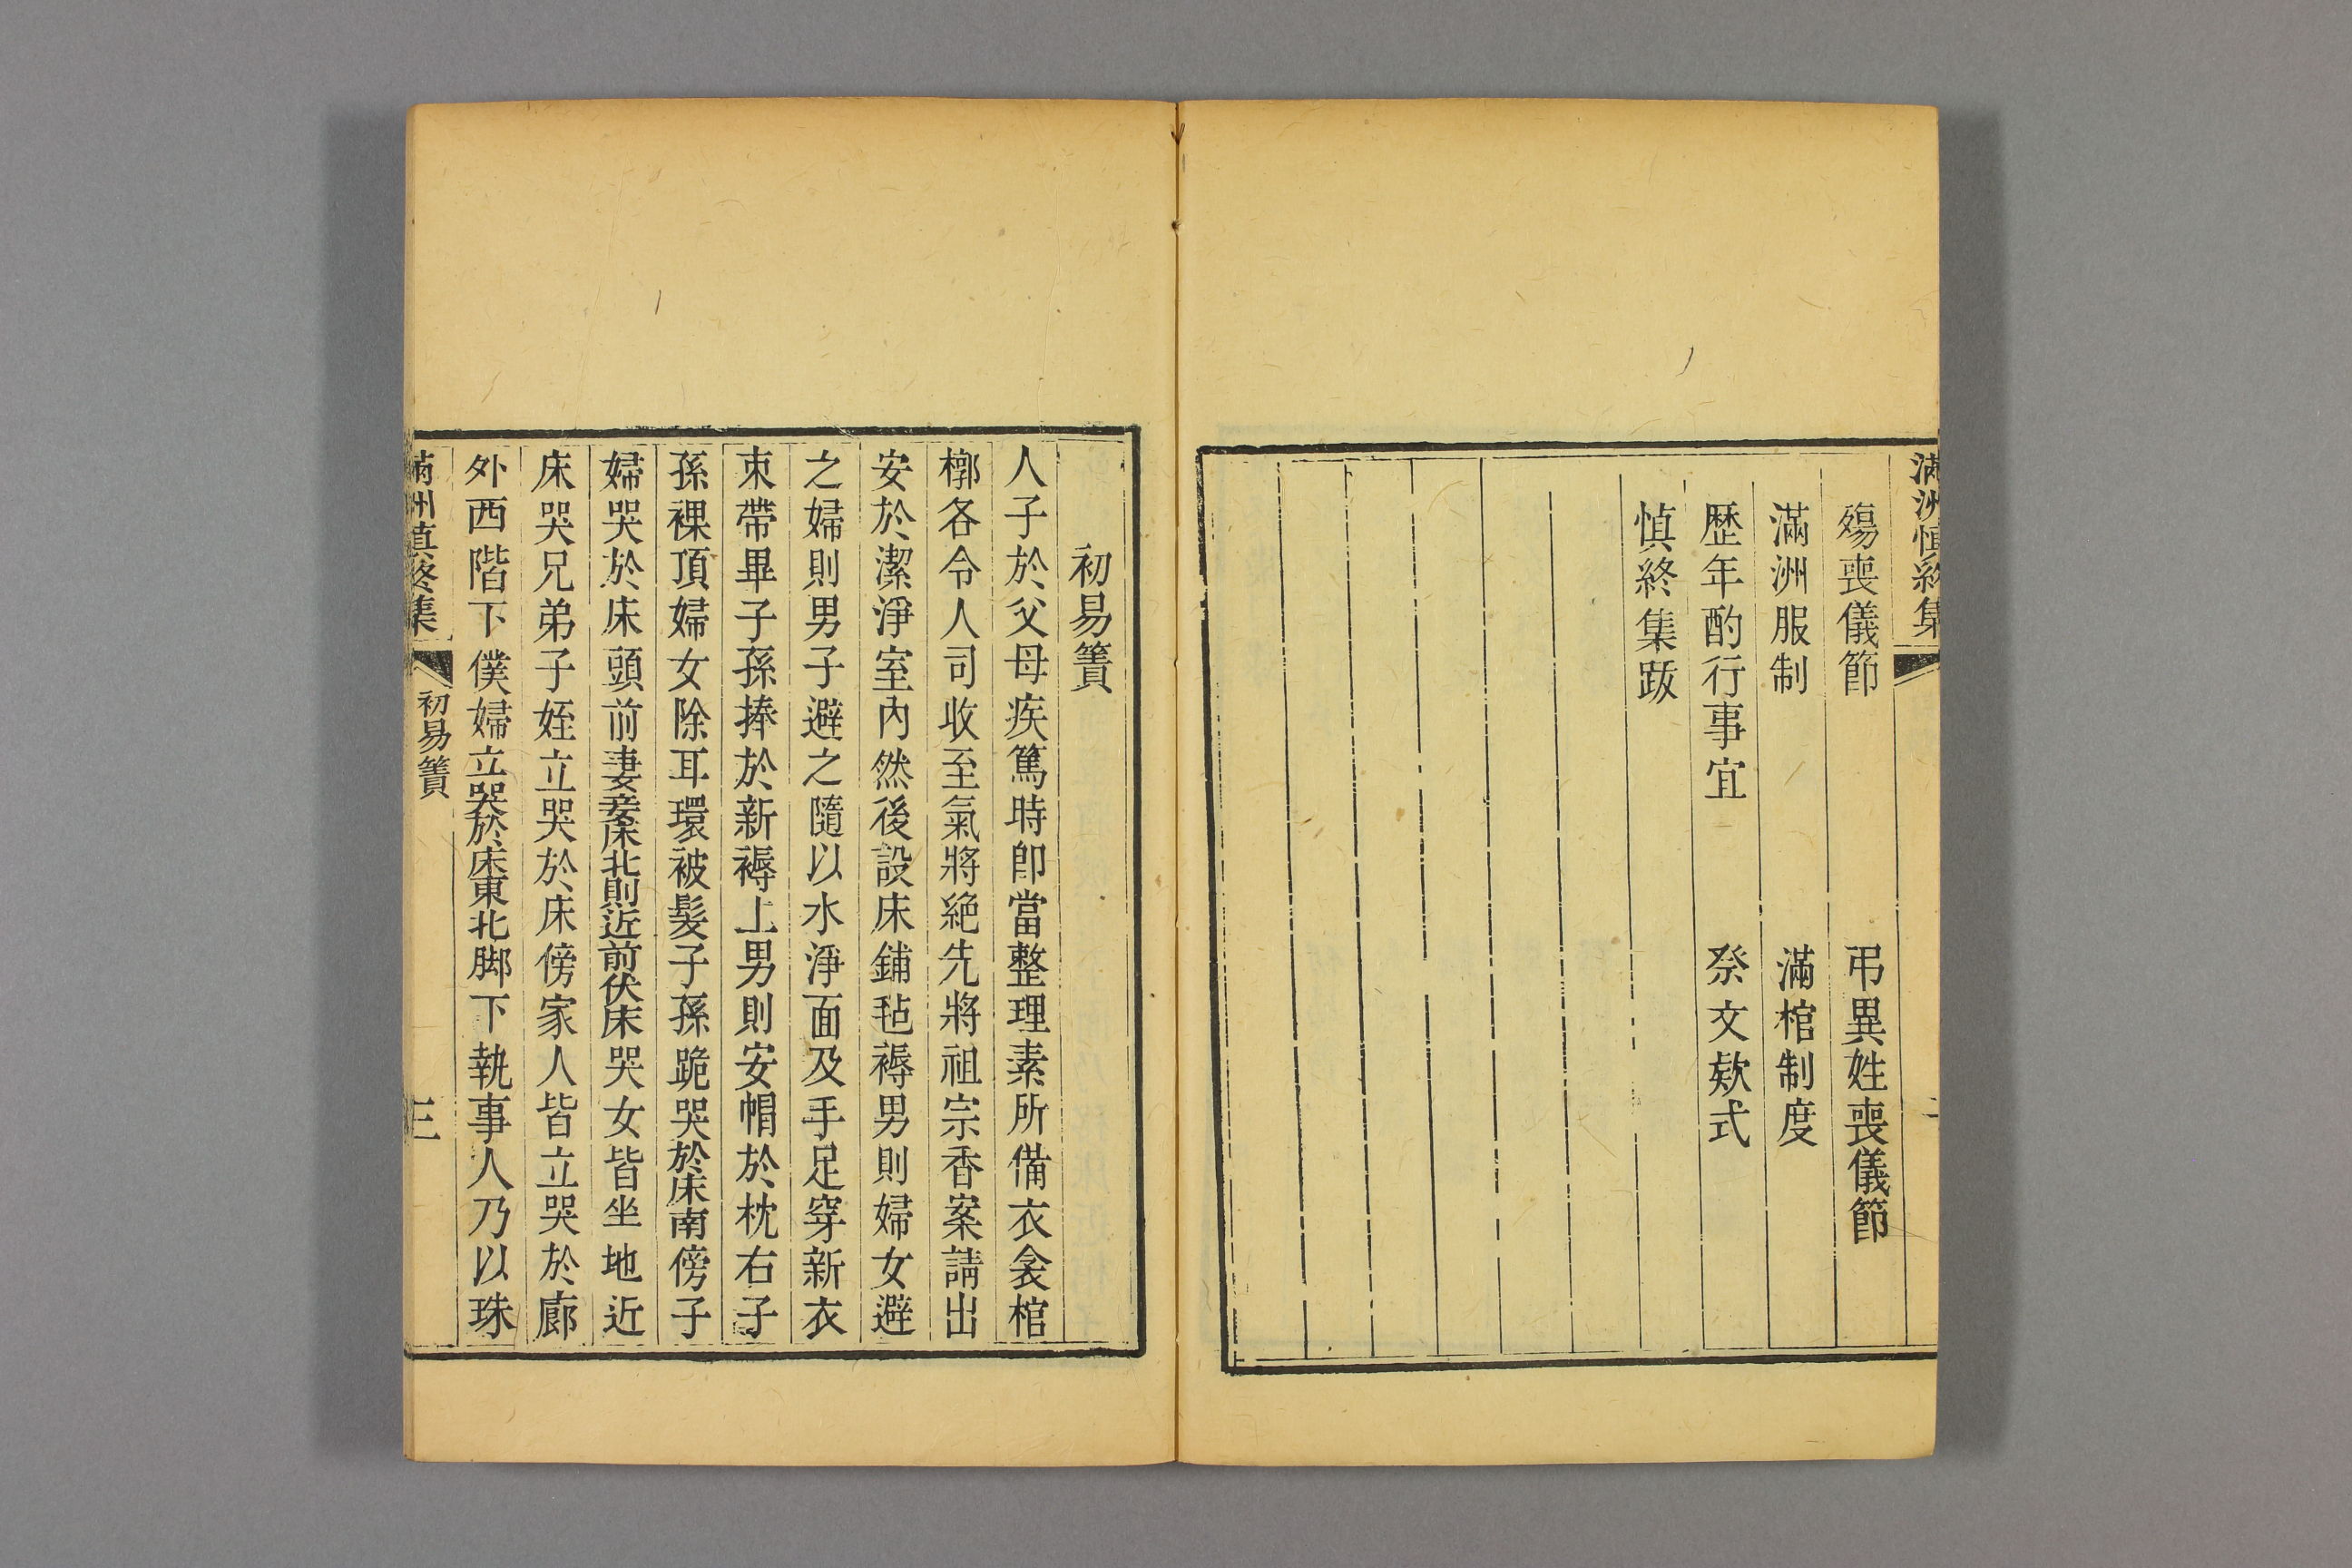 滿洲慎終集
殤喪儀節　弔異姓喪儀節
滿洲服制　滿棺制度
歷年酌行事宜　祭文欵式
慎終集跋
初易簀
人子於父母疾篤時卽當整理素所備衣衾棺
槨各令人司收至氣將絶先將祖宗香案請出
安於潔淨室內然後設床鋪毡褥男則婦女避
之婦則男子避之隨以水淨面及手足穿新衣
束帶畢子孫捧於新褥上男則安帽於枕右子
孫裸頂婦女除耳環被髮子孫跪哭於床南傍子
婦哭於床頭前妻妾床北則近前伏床哭女皆坐地近
床哭兄弟子姪立哭於床傍家人皆立哭於廊
外西階下僕婦立哭於床東北脚下執事人乃以珠
滿洲慎終集　初易簀　三